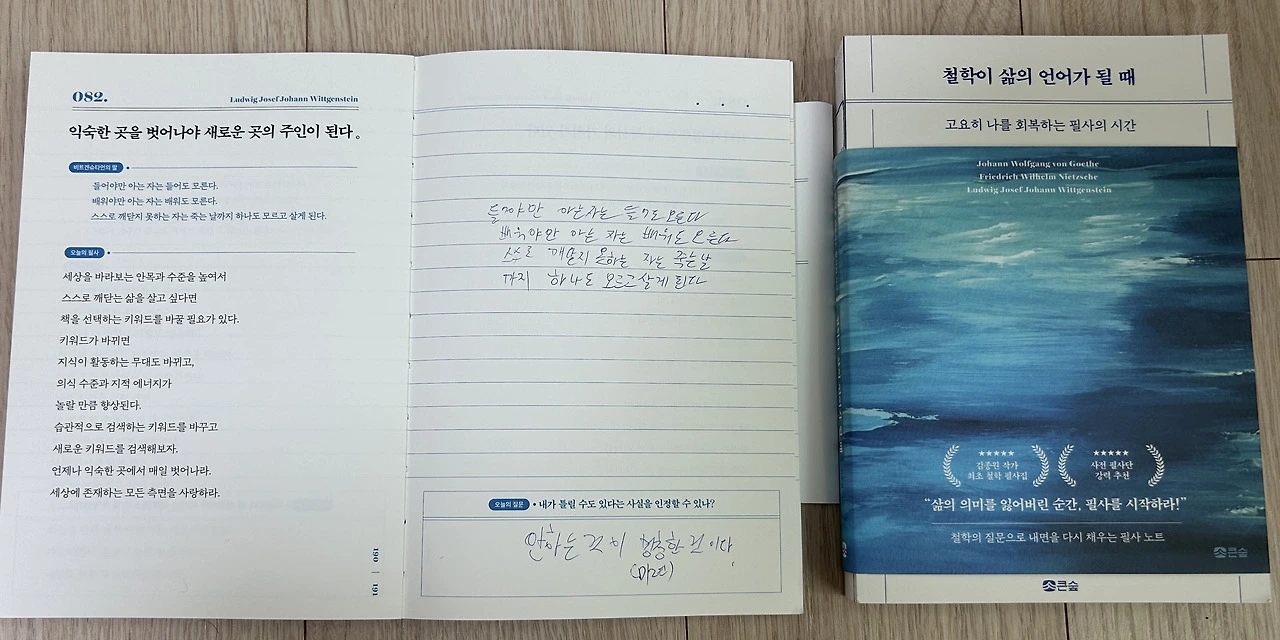 082.
Ludwig Josef Johann Wittgenstein
익숙한 곳을 벗어나야 새로운 곳의 주인이 된다.
비트겐슈타인의 말
들어야만 아는 자는 들어도 모른다.
배워야만 아는 자는 배워도 모른다.
스스로 깨닫지 못하는 자는 죽는 날까지 하나도 모르고 살게 된다.
오늘의 필사
세상을 바라보는 안목과 수준을 높여서
스스로 깨닫는 삶을 살고 싶다면
책을 선택하는 키워드를 바꿀 필요가 있다.
키워드가 바뀌면
지식이 활동하는 무대도 바뀌고,
의식 수준과 지적 에너지가
놀랄 만큼 향상된다.
습관적으로 검색하는 키워드를 바꾸고
새로운 키워드를 검색해보자.
언제나 익숙한 곳에서 매일 벗어나라.
세상에 존재하는 모든 측면을 사랑하라.
190 | 191
들어야만 아는자는 들어도 모른다
배워야만 아는 자는 배워도 모른다
스스로 깨닫지 못하는 자는 죽는날
까지 하나도 모르고 살게 된다
오늘의 질문
내가 틀릴 수도 있다는 사실을 인정할 수 있나?
안하는 것이 멍청한 것이다
철학이 삶의 언어가 될 때
고요히 나를 회복하는 필사의 시간
Johann Wolfgang von Goethe
Friedrich Wilhelm Nietzsche
Ludwig Josef Johann Wittgenstein
★★★★★
김종원 작가
최초 철학 필사집
★★★★★
사전 필사단
강력 추천
“삶의 의미를 잃어버린 순간, 필사를 시작하라!”
철학의 질문으로 내면을 다시 채우는 필사 노트
큰숲
큰숲